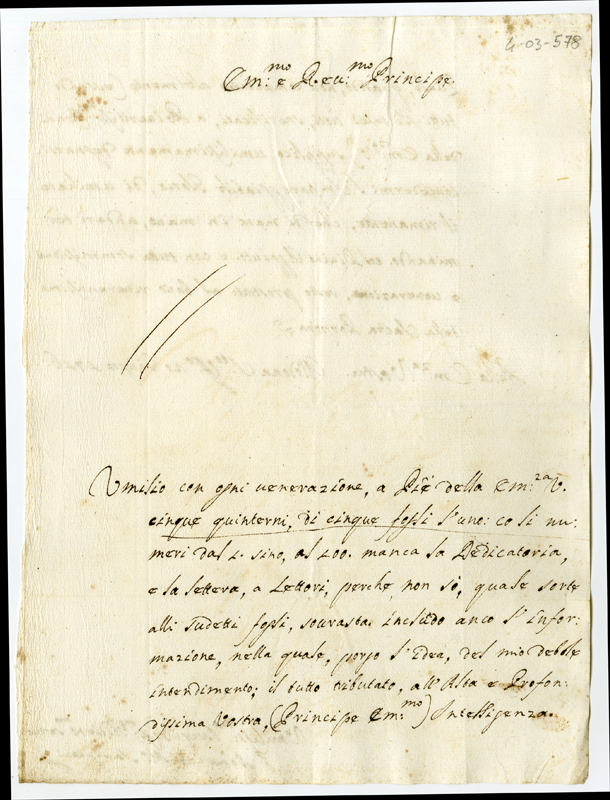 4-03-578
Em:mo e Reu:mo Principe
Vmilio con ogni venerazione, a Piè della Em:za V.
cinque quinterni, di cinque fogli l'uno: co li nu=
meri dal 1. sino, al 100. manca la Dedicatoria,
e la lettera, a Lettori, perche, non sò, quale sorte
alli sudetti fogli, sourasta. includo anco l'infor=
mazione, nella quale, porgo l'idea, del mio debole
intendimento; il tutto tributato, all'Alta e Profon=
dissima Vostra, (Principe Em:mo) Intelligenza.